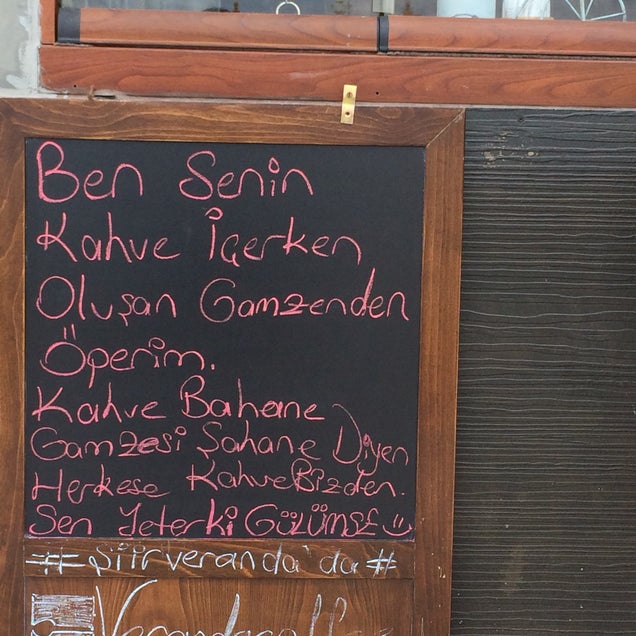 Ben Senin
Kahve İçerken
Oluşan Gamzenden
Öperim.
Kahve Bahane
Gamzesi Şahane Diyen
Herkese Kahve Bizden.
Sen Yeterki GÜLÜMSE
#Şiirveranda'da#